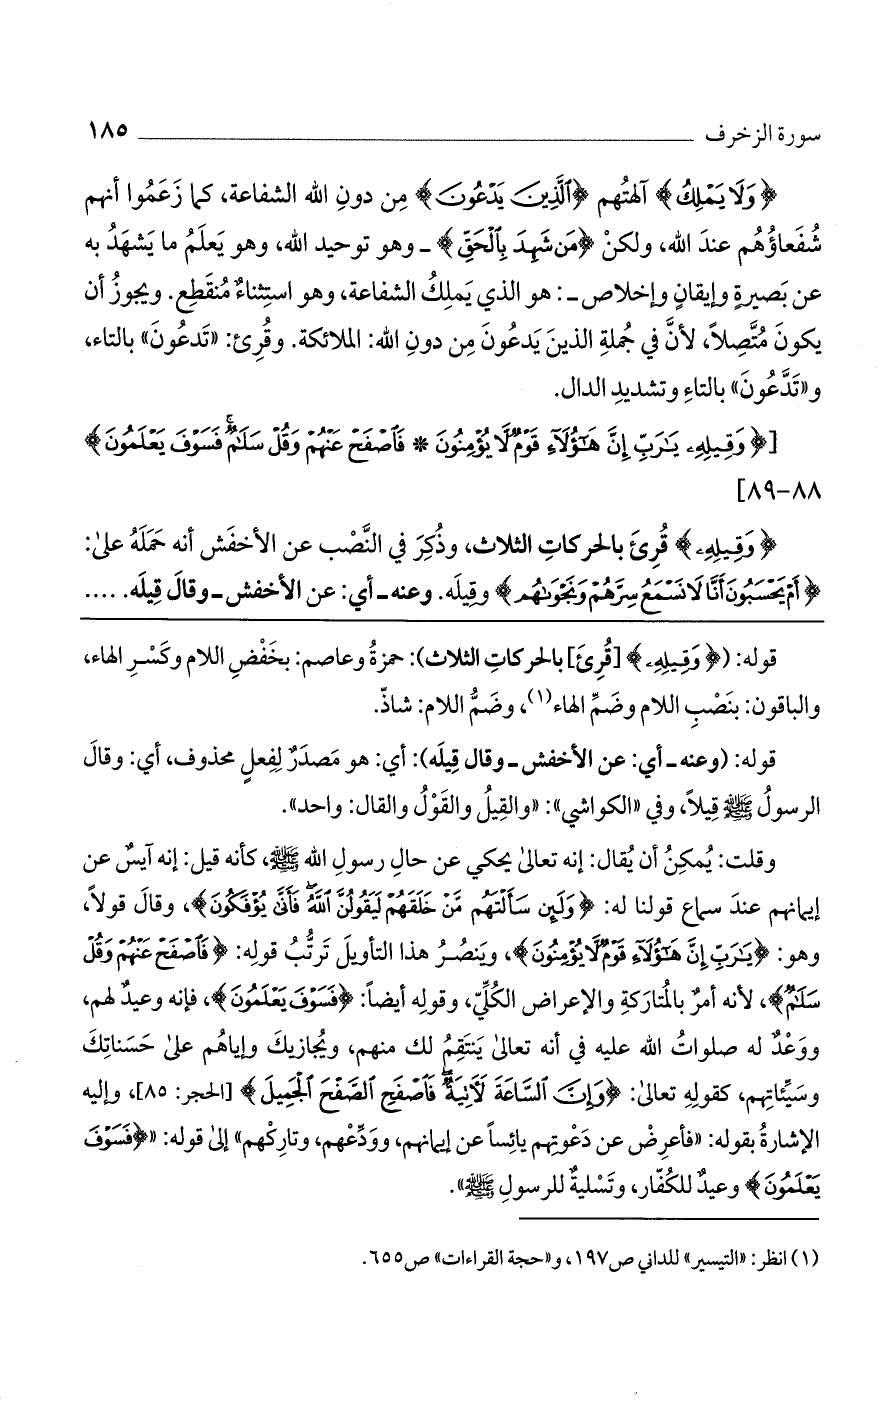 سورة الزخرف ١٨٥
﴿وَلَا يَمْلِكُ﴾ آلهتُهم ﴿ٱلَّذِينَ يَدْعُونَ﴾ مِن دونِ الله الشفاعة، كما زَعَمُوا أنهم
شُفَعاؤُهُم عندَ الله، ولكنْ ﴿مَن شَهِدَ بِٱلْحَقِّ﴾ ـ وهو توحيد الله، وهو يَعلَمُ ما يَشهَدُ به
عن بَصيرةٍ وإيقانٍ وإخلاص ـ: هو الذي يَملِكُ الشفاعة، وهو استِثناءٌ مُنقَطِع. ويجوزُ أن
يكونَ مُتَّصِلاً، لأنَّ في جُملةِ الذينَ يَدعُونَ مِن دونِ الله: الملائكة. وقُرِئ: «تَدعُونَ» بالتاء،
و«تَدَّعُونَ» بالتاءِ وتشديدِ الدال.
[﴿وَقِيلِهِۦ يَٰرَبِّ إِنَّ هَٰٓؤُلَآءِ قَوْمٌ لَّا يُؤْمِنُونَ * فَٱصْفَحْ عَنْهُمْ وَقُلْ سَلَٰمٌ ۚ فَسَوْفَ يَعْلَمُونَ﴾
٨٨-٨٩]
﴿وَقِيلِهِۦ﴾ قُرِئَ بالحركاتِ الثلاث، وذُكِرَ في النَّصْب عن الأخفَش أنه حَمَلَهُ علىٰ:
﴿أَمْ يَحْسَبُونَ أَنَّا لَا نَسْمَعُ سِرَّهُمْ وَنَجْوَىٰهُم﴾ وقِيلَه. وعنه ـ أي: عن الأخفش ـ وقالَ قِيلَه. ....
قوله: (﴿وَقِيلِهِۦ﴾ [قُرِئَ] بالحركاتِ الثلاث): حمزةُ وعاصم: بخَفْضِ اللام وكَسْرِ الهاء،
والباقون: بنَصْبِ اللام وضَمِّ الهاء(١)، وضَمُّ اللام: شاذّ.
قوله: (وعنه ـ أي: عن الأخفش ـ وقال قِيلَه): أي: هو مَصدَرٌ لِفعلٍ محذوف، أي: وقالَ
الرسولُ ﷺ قِيلاً، وفي «الكواشي»: «والقِيلُ والقَوْلُ والقال: واحد».
وقلت: يُمكِنُ أن يُقال: إنه تعالىٰ يحكي عن حالِ رسولِ الله ﷺ، كأنه قيل: إنه آيسٌ عن
إيمانهم عندَ سماع قولنا له: ﴿وَلَئِن سَأَلْتَهُم مَّنْ خَلَقَهُمْ لَيَقُولُنَّ ٱللَّهُ ۖ فَأَنَّىٰ يُؤْفَكُونَ﴾، وقالَ قولاً،
وهو: ﴿يَٰرَبِّ إِنَّ هَٰٓؤُلَآءِ قَوْمٌ لَّا يُؤْمِنُونَ﴾، ويَنصُرُ هذا التأويلَ تَرتُّبُ قولِه: ﴿فَٱصْفَحْ عَنْهُمْ وَقُلْ
سَلَٰمٌ﴾، لأنه أمرٌ بالمُتارَكةِ والإعراض الكُلِّيّ، وقولِه أيضاً: ﴿فَسَوْفَ يَعْلَمُونَ﴾، فإنه وعيدٌ لهم،
ووَعْدٌ له صلواتُ الله عليه في أنه تعالىٰ يَنتَقِمُ لك منهم، ويُجازيكَ وإياهُم علىٰ حَسَناتِكَ
وسَيِّئاتِهم، كقولِهِ تعالىٰ: ﴿وَإِنَّ ٱلسَّاعَةَ لَأَتِيَةٌ ۖ فَٱصْفَحِ ٱلصَّفْحَ ٱلْجَمِيلَ﴾ [الحجر: ٨٥]، وإليه
الإشارةُ بقوله: «فأعرِضْ عن دَعْوتِهم يائِساً عن إيمانهم، ووَدِّعْهم، وتارِكْهم» إلىٰ قوله: «﴿فَسَوْفَ
يَعْلَمُونَ﴾ وعيدٌ للكُفّار، وتَسْليةٌ للرسولِ ﷺ».
(١) انظر: «التيسير» للداني ص١٩٧، و«حجة القراءات» ص٦٥٥.